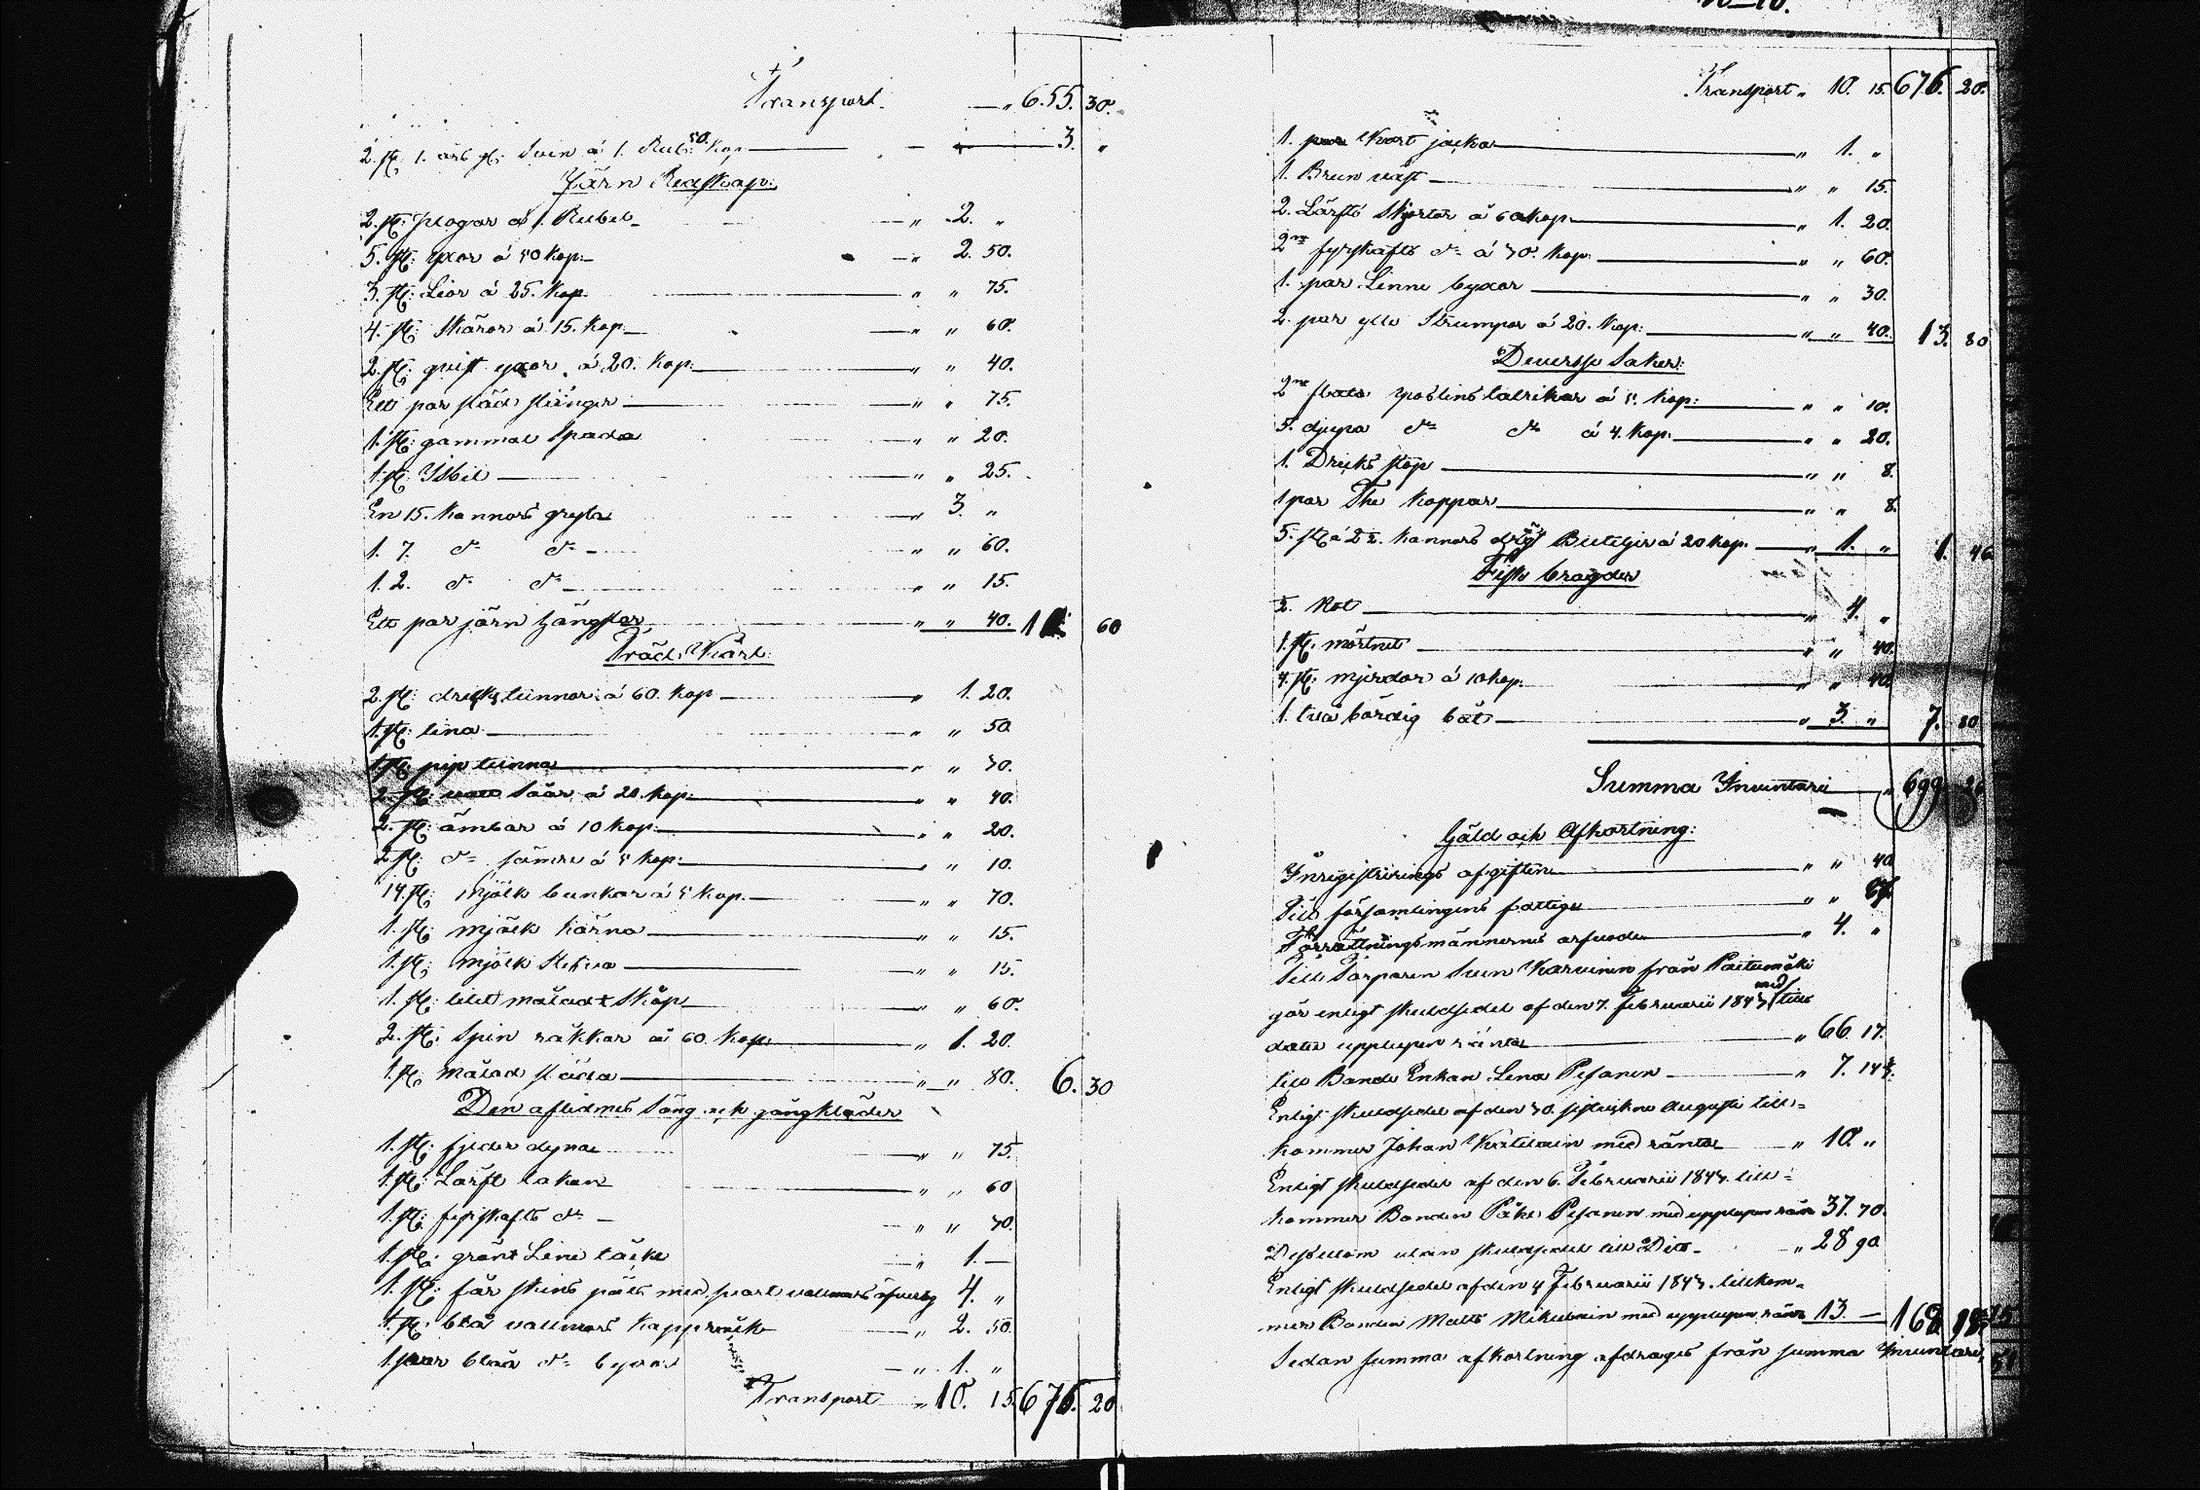 Transport „ 655. 30.
2. st: 1. års gl: Svin á 1. Rub: 50. Kop 3. „
Järn Redskap:
2. st: plogar á 1. Rubel „ 2. „
5. st: yxor á 50 Kop: „ 2. 50.
3. st: Lior á 25. Kop. „ „ 75.
4. st: Skäror á 15. Kop „ „ 60.
2. st: qvist yxor á 20. Kop. „ „ 40.
Ett par städ stänger „ „ 75.
1. st: gammal Spada „ „ 20.
1. st: Isbil „ „ 25.
En 15. Kannors gryta „ 3. „
1. 7. do do „ „ 60.
1. 2. do do „ „ 15.
Ett par järn hängslor „ „ 40. 60
Träd Kärl:
2. st: dricks tunnor á 60. Kop „ 1. 20.
1. st: tina „ „ 50
1. st: pip tunna „ „ 30.
2. st: Såår á 20. Kop: „ „ 40.
2. st: ämbar á 10 Kop: „ „ 20.
2. st: do sämre á 5 Kop: „ „ 10.
14. st: mjölk bunkar á 5 Kop. „ „ 70.
1. st: mjölk kärna „ „ 15.
1. st: mjölk „ „ 15.
1. st: litet måladt Skåp „ „ 60.
2. st: Spin råkkar á 60. Kop: „ 1. 20.
1. st: målad släda „ „ 80. 6. 30
Den aflidnes Säng och gångkläder
1. st: fjeder dyna „ „ 75.
1. st: Lärft lakan „ „ 60
1. st: fyrskafts do „ „ 30.
1. st: grönt Line täcke „ 1. —
1. st: får skins päls med svart vallmars öfvertyg 4. „
1. st: blå vallmars Kapprock „ 2. 50.
1 par blåa do byxor „ 1. „
Transport „ 10. 15. 676. 20
Transport „ 10. 15. 676. 20.
1. Kort jacka „ 1. „
1. Brun väst „ „ 15.
2. Lärfts Skjortor á 60 Kop: „ 1. 20.
2ne fyrskafts do á 30. Kop: „ „ 60.
1. par Linne byxor „ „ 30.
2. par ylle Strumpor á 20. Kop: „ „ 40. 13. 80
Diverse Saker:
2ne flata postins talrikar á 5. Kop: „ „ 10.
5. djupa do do á 4. Kop: „ „ 20.
1. Dricks stop „ „ 8.
1 par The Koppar „ „ 8.
5. st á 2 Kannors Buteljer á 20 Kop. „ 1. „ 1. 46
Fisk bragder
2. Not „ 4. „
1. st: mörtnet „ „ 40.
4. st: mjerdar á 10 Kop. „ „ 40.
1. två bördig båt „ 3. „ 7. 80
Summa Inventarii „ 699. 26
Gäld och Afkortning:
Inregistrerings afgiften „ „ 40
Till församlingens fattige „ „
Förrättningsmännernes arfvode „ 4. „
Till Torparen Sven Karvinen från Paitumäki
går enligt skuldsedel af den 7. Februarii 184 med till
dato upplupen ränta „ 66. 17.
till Bonde Enkan Lena Pesanen „ 7.
Enligt skuldsedel af den 30. sistvikne Augusti till=
kommer Johan med ränta „ 10. „
Enligt skuldsedel af den 6. Februarii 184 till=
kommer Bonden Påhl Pesanen med upplupen ränta 37. 70.
Dessutom utan skuldsedel till Dito „ 28 90
Enligt skuldsedel af den 4 Februarii 184 tillkom=
mer Bonden Matts med upplupen ränta 13. — 168.
Sedan summa afkortning afdrages från summa Inventarii,